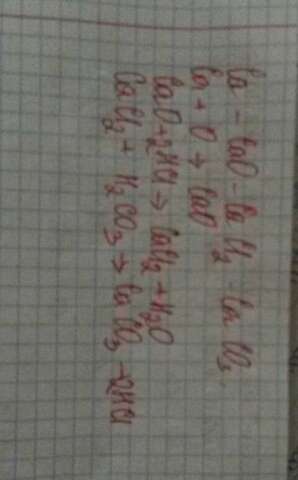 Ca - CaO - CaCl₂ - CaCO₃
Ca + O → CaO
CaO + 2HCl → CaCl₂ + H₂O
CaCl₂ + H₂CO₃ → CaCO₃ → 2HCl